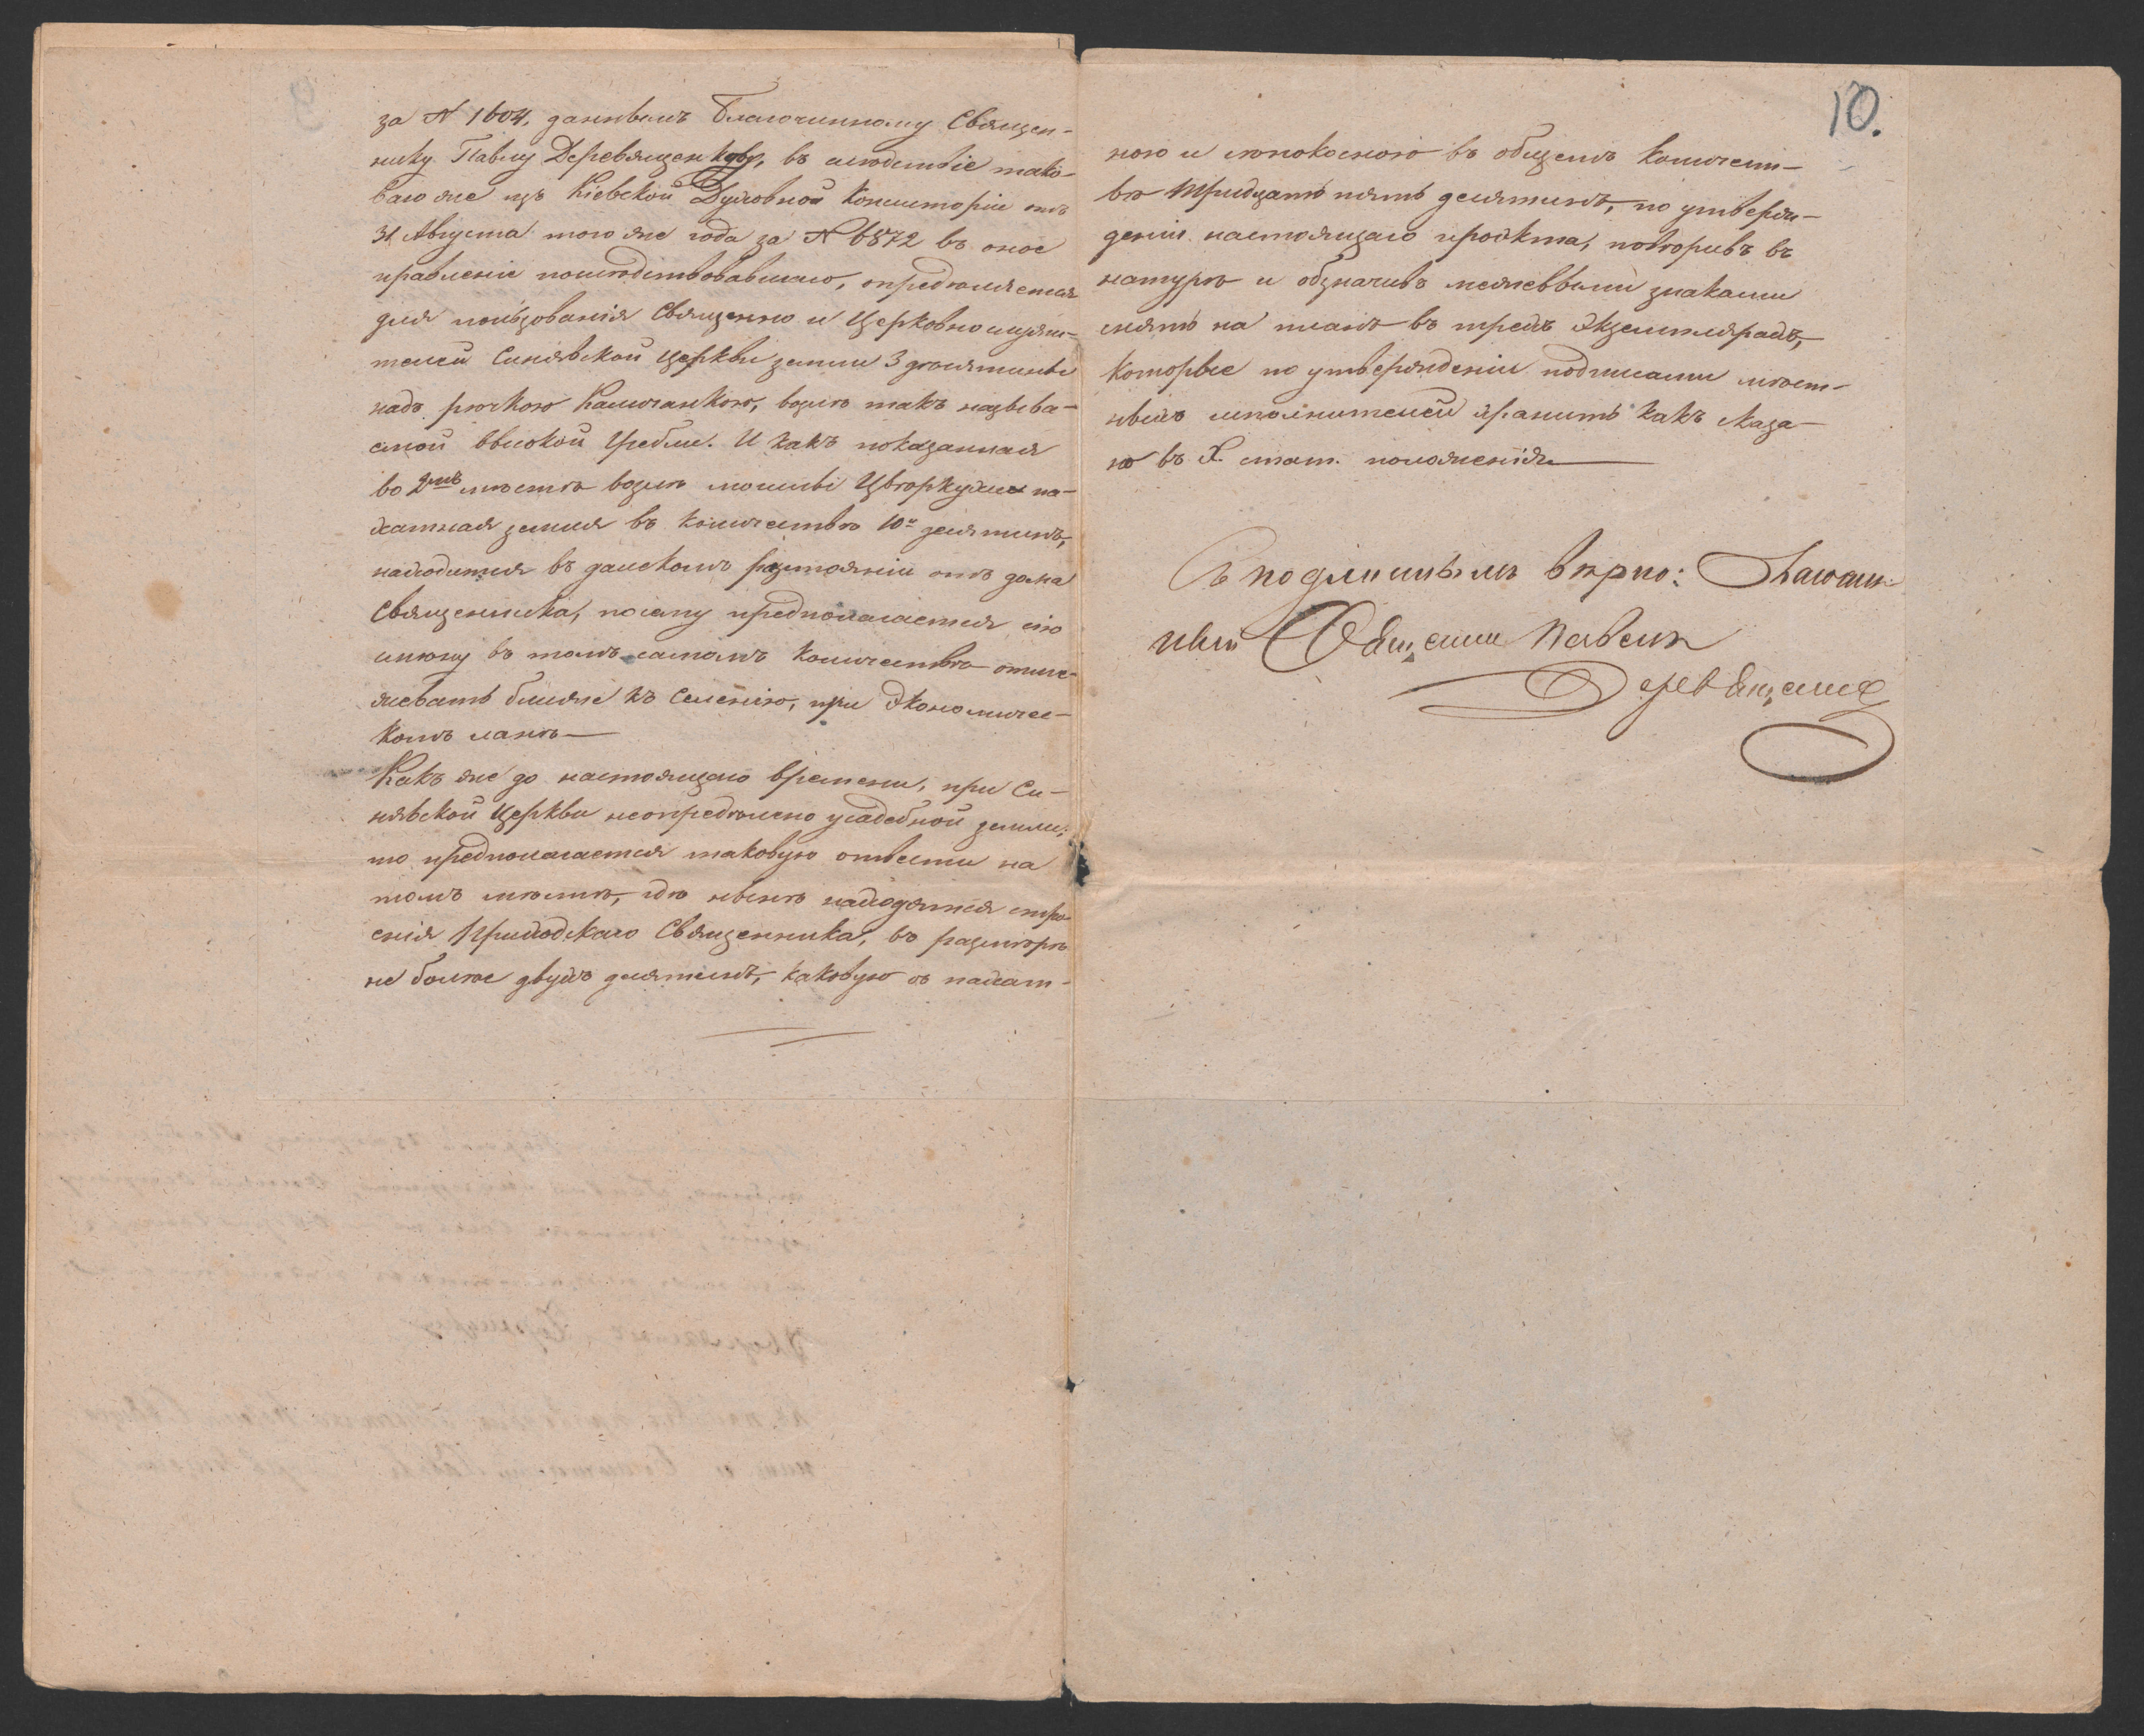 за N 1604, даннымъ Благочинному Священ-
нику Павлу Деревященкову, въ слѣдствіе тако-
ваго же изъ Кіевской Духовной Консисторіи отъ
31 Августа того же года за N 6872 въ оное
правленіе послѣдствовавшаго, опредѣляется
для пользованія Священно и Церковнослужи-
телей Синявской Церкви земли 3 десятины
надъ рѣчкою Камянкою, возлѣ такъ называ-
емой высокой Гребли. И какъ показанная
во 2мъ мѣстѣ возлѣ могилы па-
хатная земля въ количествѣ 10и десятинъ,
находится въ далекомъ разстояніи отъ дома
Священника, посему предполагается сію
землю въ томъ самомъ количествѣ отме-
жевать ближе къ Селенію, при Экономичес-
комъ ланѣ
Какъ же до настоящаго времени, при Си-
нявской Церкви неопредѣлено усадебной земли,
то предполагается таковую отвести на
томъ мѣстѣ, гдѣ нынѣ находятся стро-
енія Приходскаго Священника, въ размѣрѣ
не болѣе двухъ десятинъ, каковую съ пахат-
10.
ною и сѣнокосною въ общемъ количест-
вѣ тридцать пять десятинъ, по утверж-
деніи настоящаго проэкта, повѣривъ въ
натурѣ и обзначивъ межевыми знаками
снять на планъ въ трехъ экземплярахъ,
которые по утвержденіи подписами мѣст-
ныхъ исполнителей хранить какъ сказа-
но въ X. стат. положенія
Съ подлиннымъ вѣрно: Благочин-
ный Священник Павелъ
Деревященко